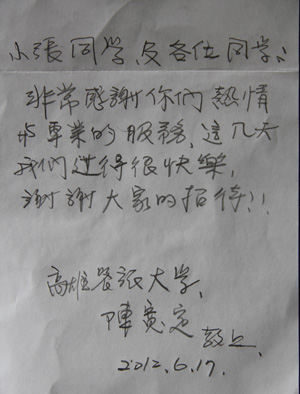 小張同学及各位同学:
非常感謝你們熱情
与專業的服務,這几天
我们过得很快樂,
謝謝大家的招待!!
高雄餐旅大学,
陳寬定 敬上.
2012.6.17.